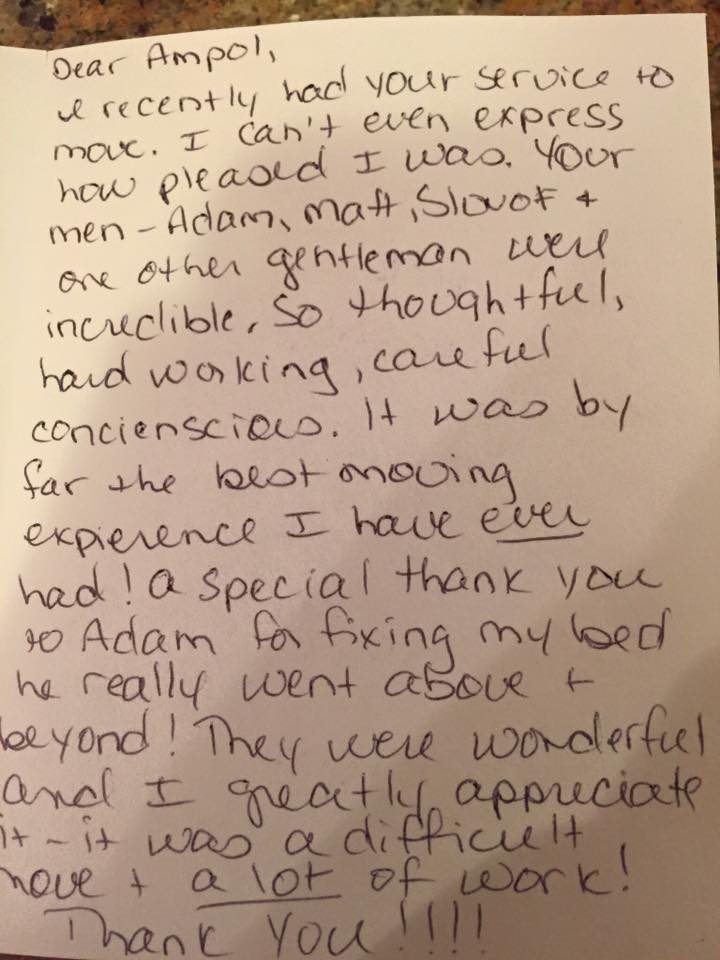 Dear Ampol,
I recently had your service to
move. I can't even express
how pleased I was. Your
men - Adam, Matt, Slovot +
one other gentleman were
incredible. So thoughtful,
hard working, careful
concienscious. It was by
far the best moving
expierence I have ever
had! a special thank you
to Adam for fixing my bed
he really went above +
beyond! They were wonderful
and I greatly appreciate
it - it was a difficult
move + a lot of work!
Thank You!!!!